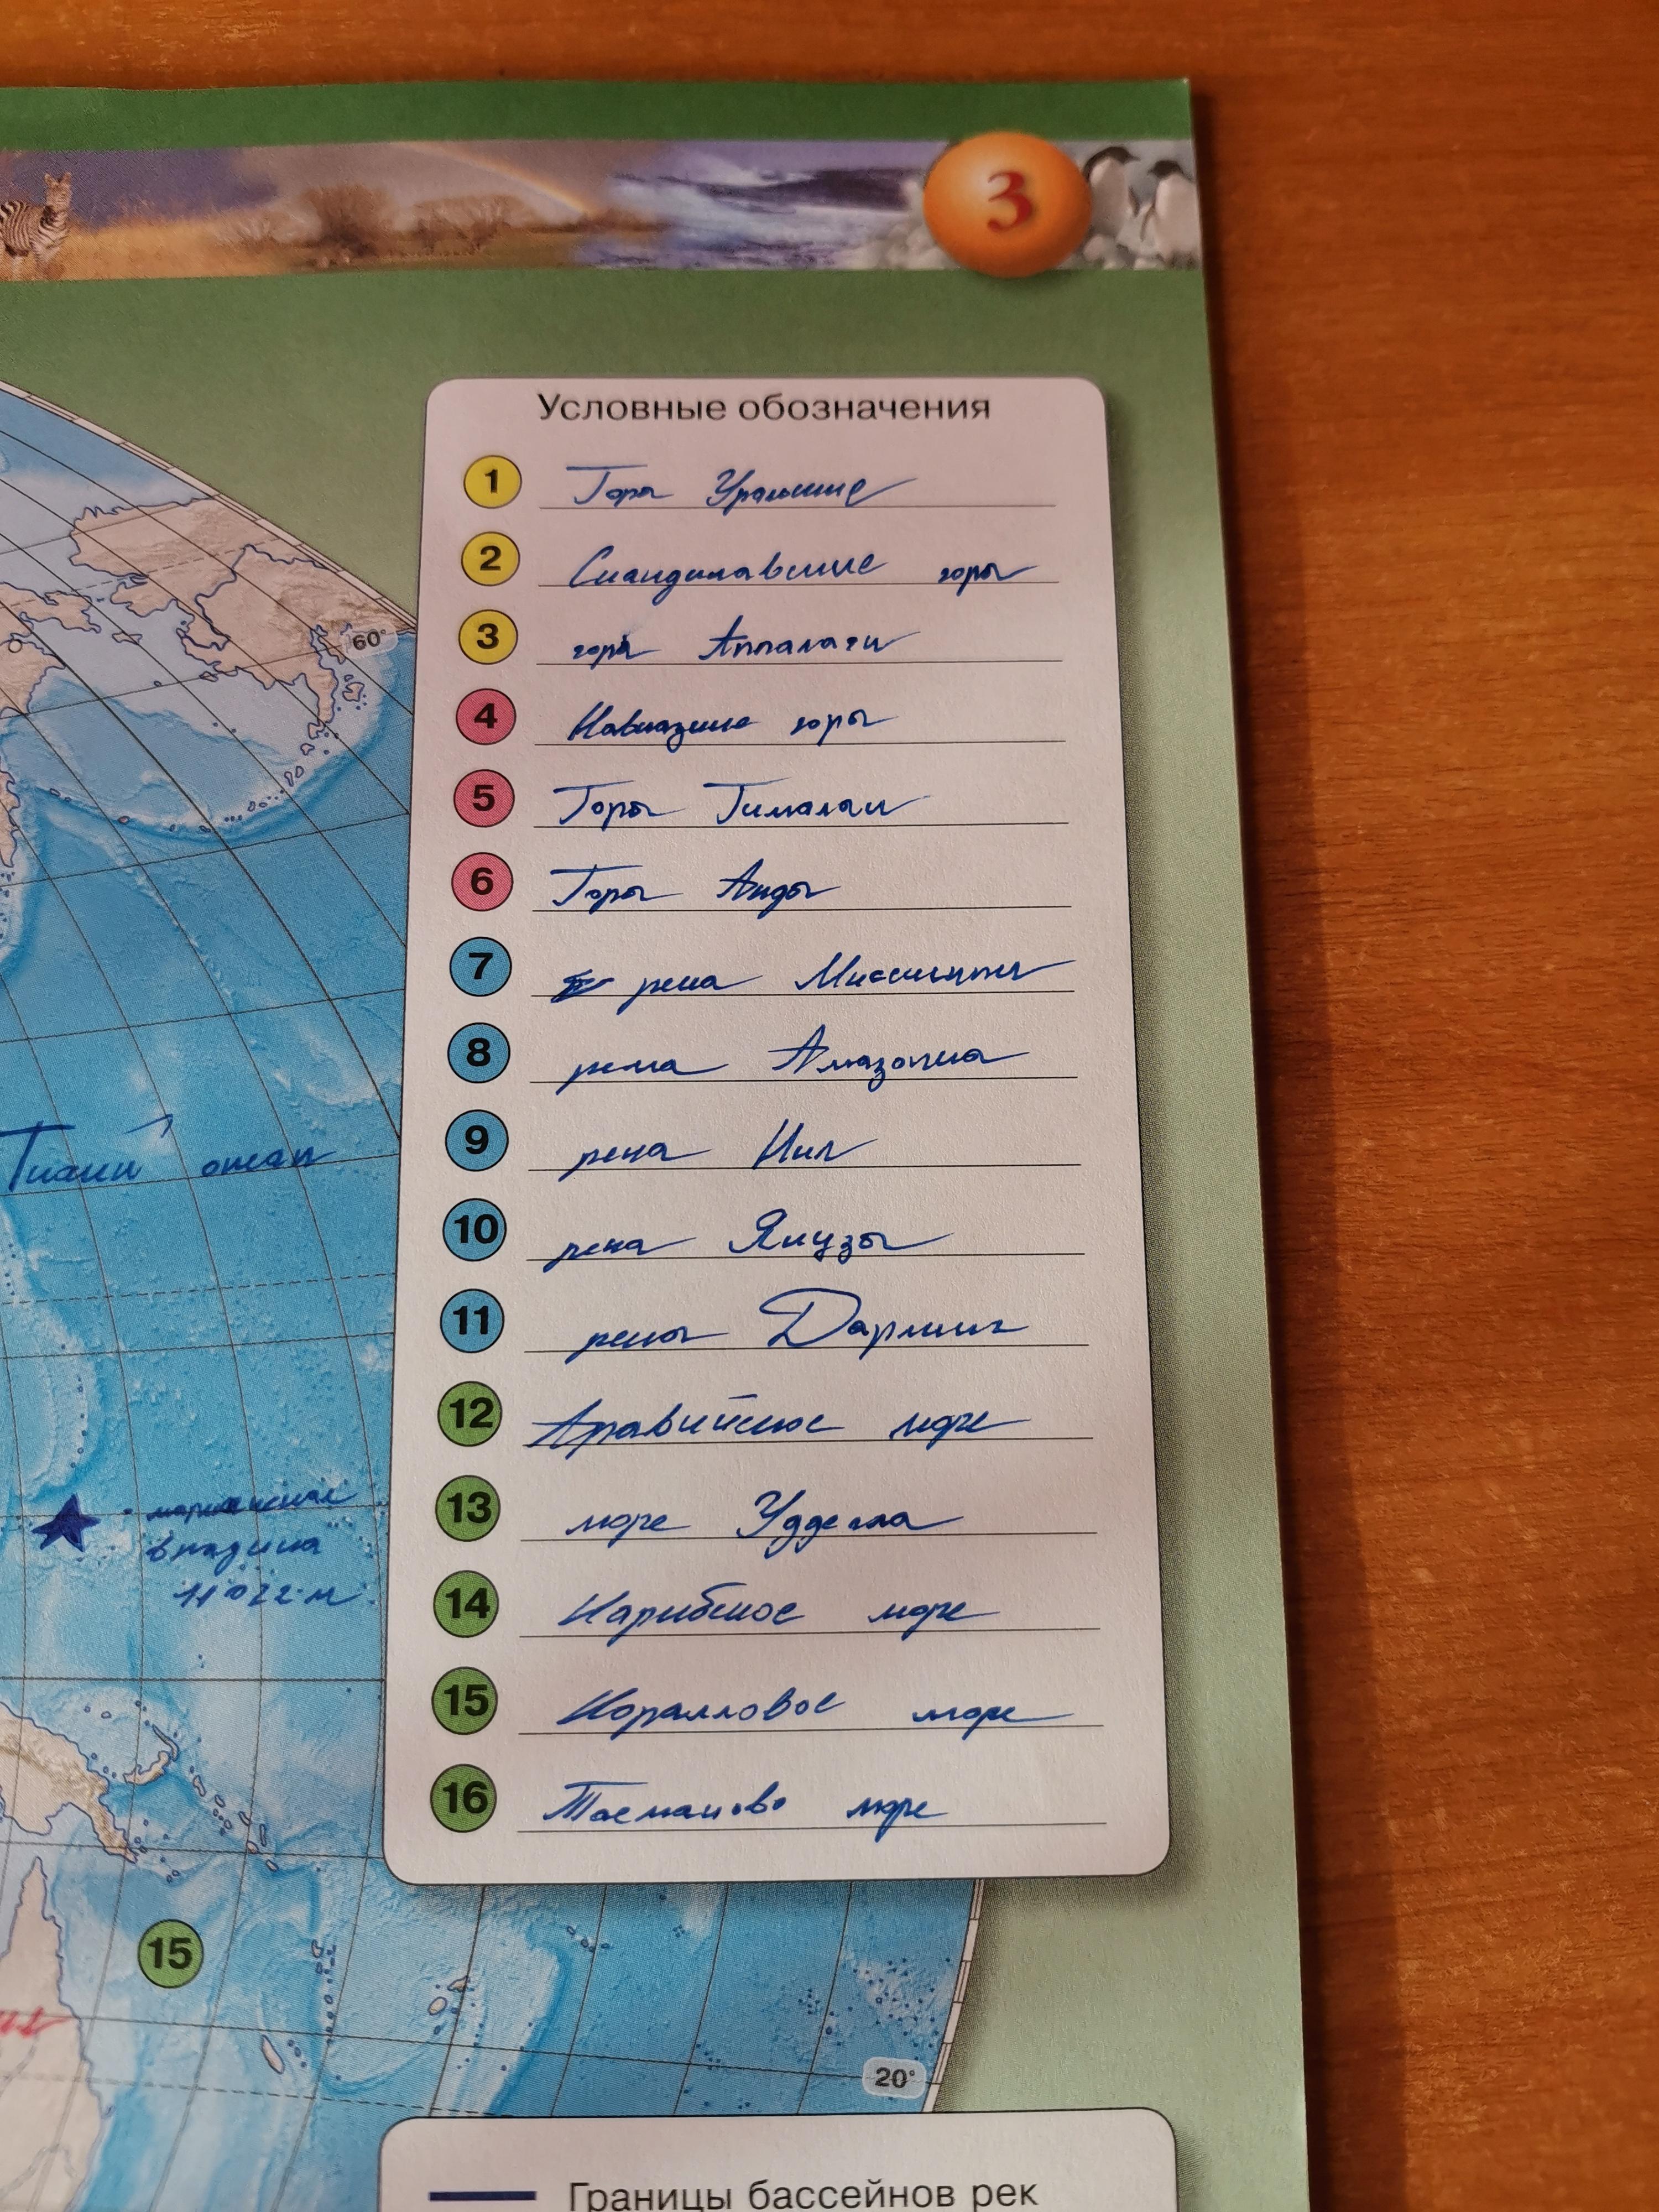 3
Условные обозначения
1 Горы Уральские
2 Скандинавские горы
3 горы Аппалачи
4 Кавказские горы
5 Горы Гималаи
6 Горы Анды
7 река Миссисипи
8 река Амазонка
9 река Нил
10 река Янцзы
11 река Дарлинг
12 Аравийское море
13 море Удделла
14 Карибское море
15 Коралловое море
16 Тасманово море
60°
Тихий океан
марианская
впадина
11 022 м
15
20°
Границы бассейнов рек